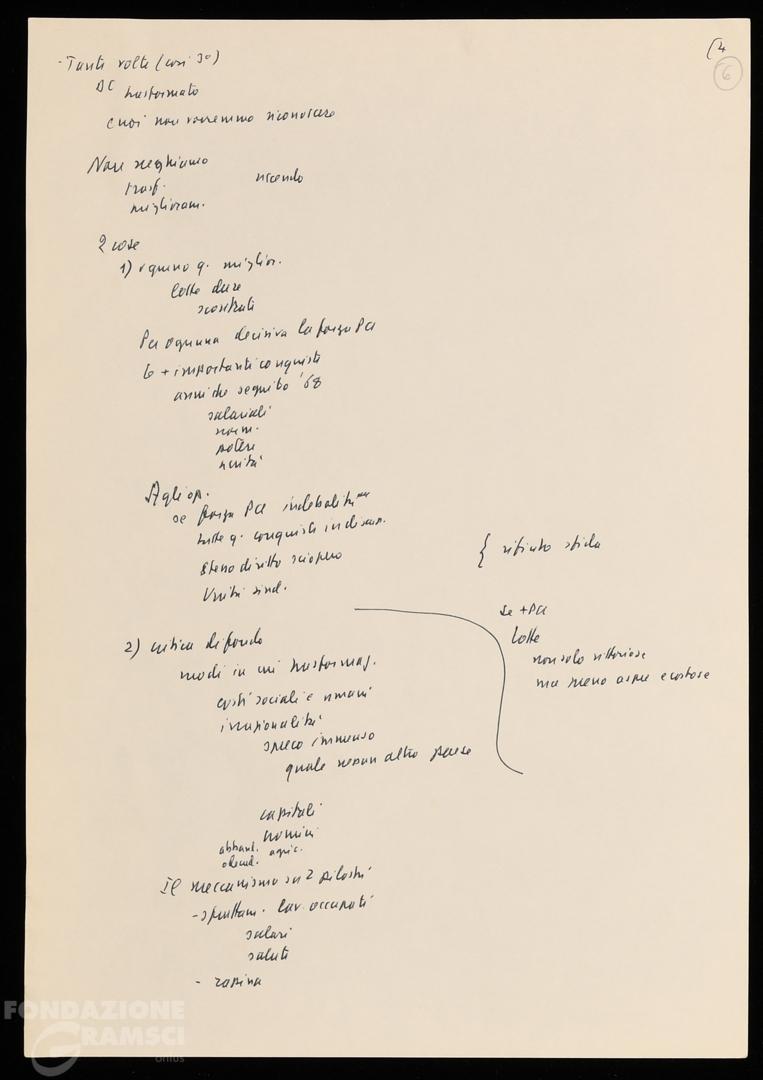 (4
6
- Tante volte (così 30)
DC trasformato
e noi non vorremmo riconoscere
Non neghiamo
trasf. vicendo
miglioram.
2 cose
1) ognuno q. miglior.
lotte dure
scontrati
Per ognuna decisiva la forza PCI
le + importanti conquiste
anni che seguito '68
salariali
norm.
potere
unità
Agli op.
se forza PCI indebolita
tutte q. conquiste in discus.
stesso diritto sciopero
Unità sind.
{ rifiuto sfida
se + PCI
lotte
non solo vittoriose
ma meno aspre e costose
2) critica di fondo
modi in cui trasformaz.
costi sociali e umani
irrazionalità
spreco immenso
quale nessun altro paese
capitali
uomini
abband. agric.
Il meccanismo su 2 pilastri
- sfruttam. lav. occupati
salari
salute
- rapina
FONDAZIONE
GRAMSCI
onlus